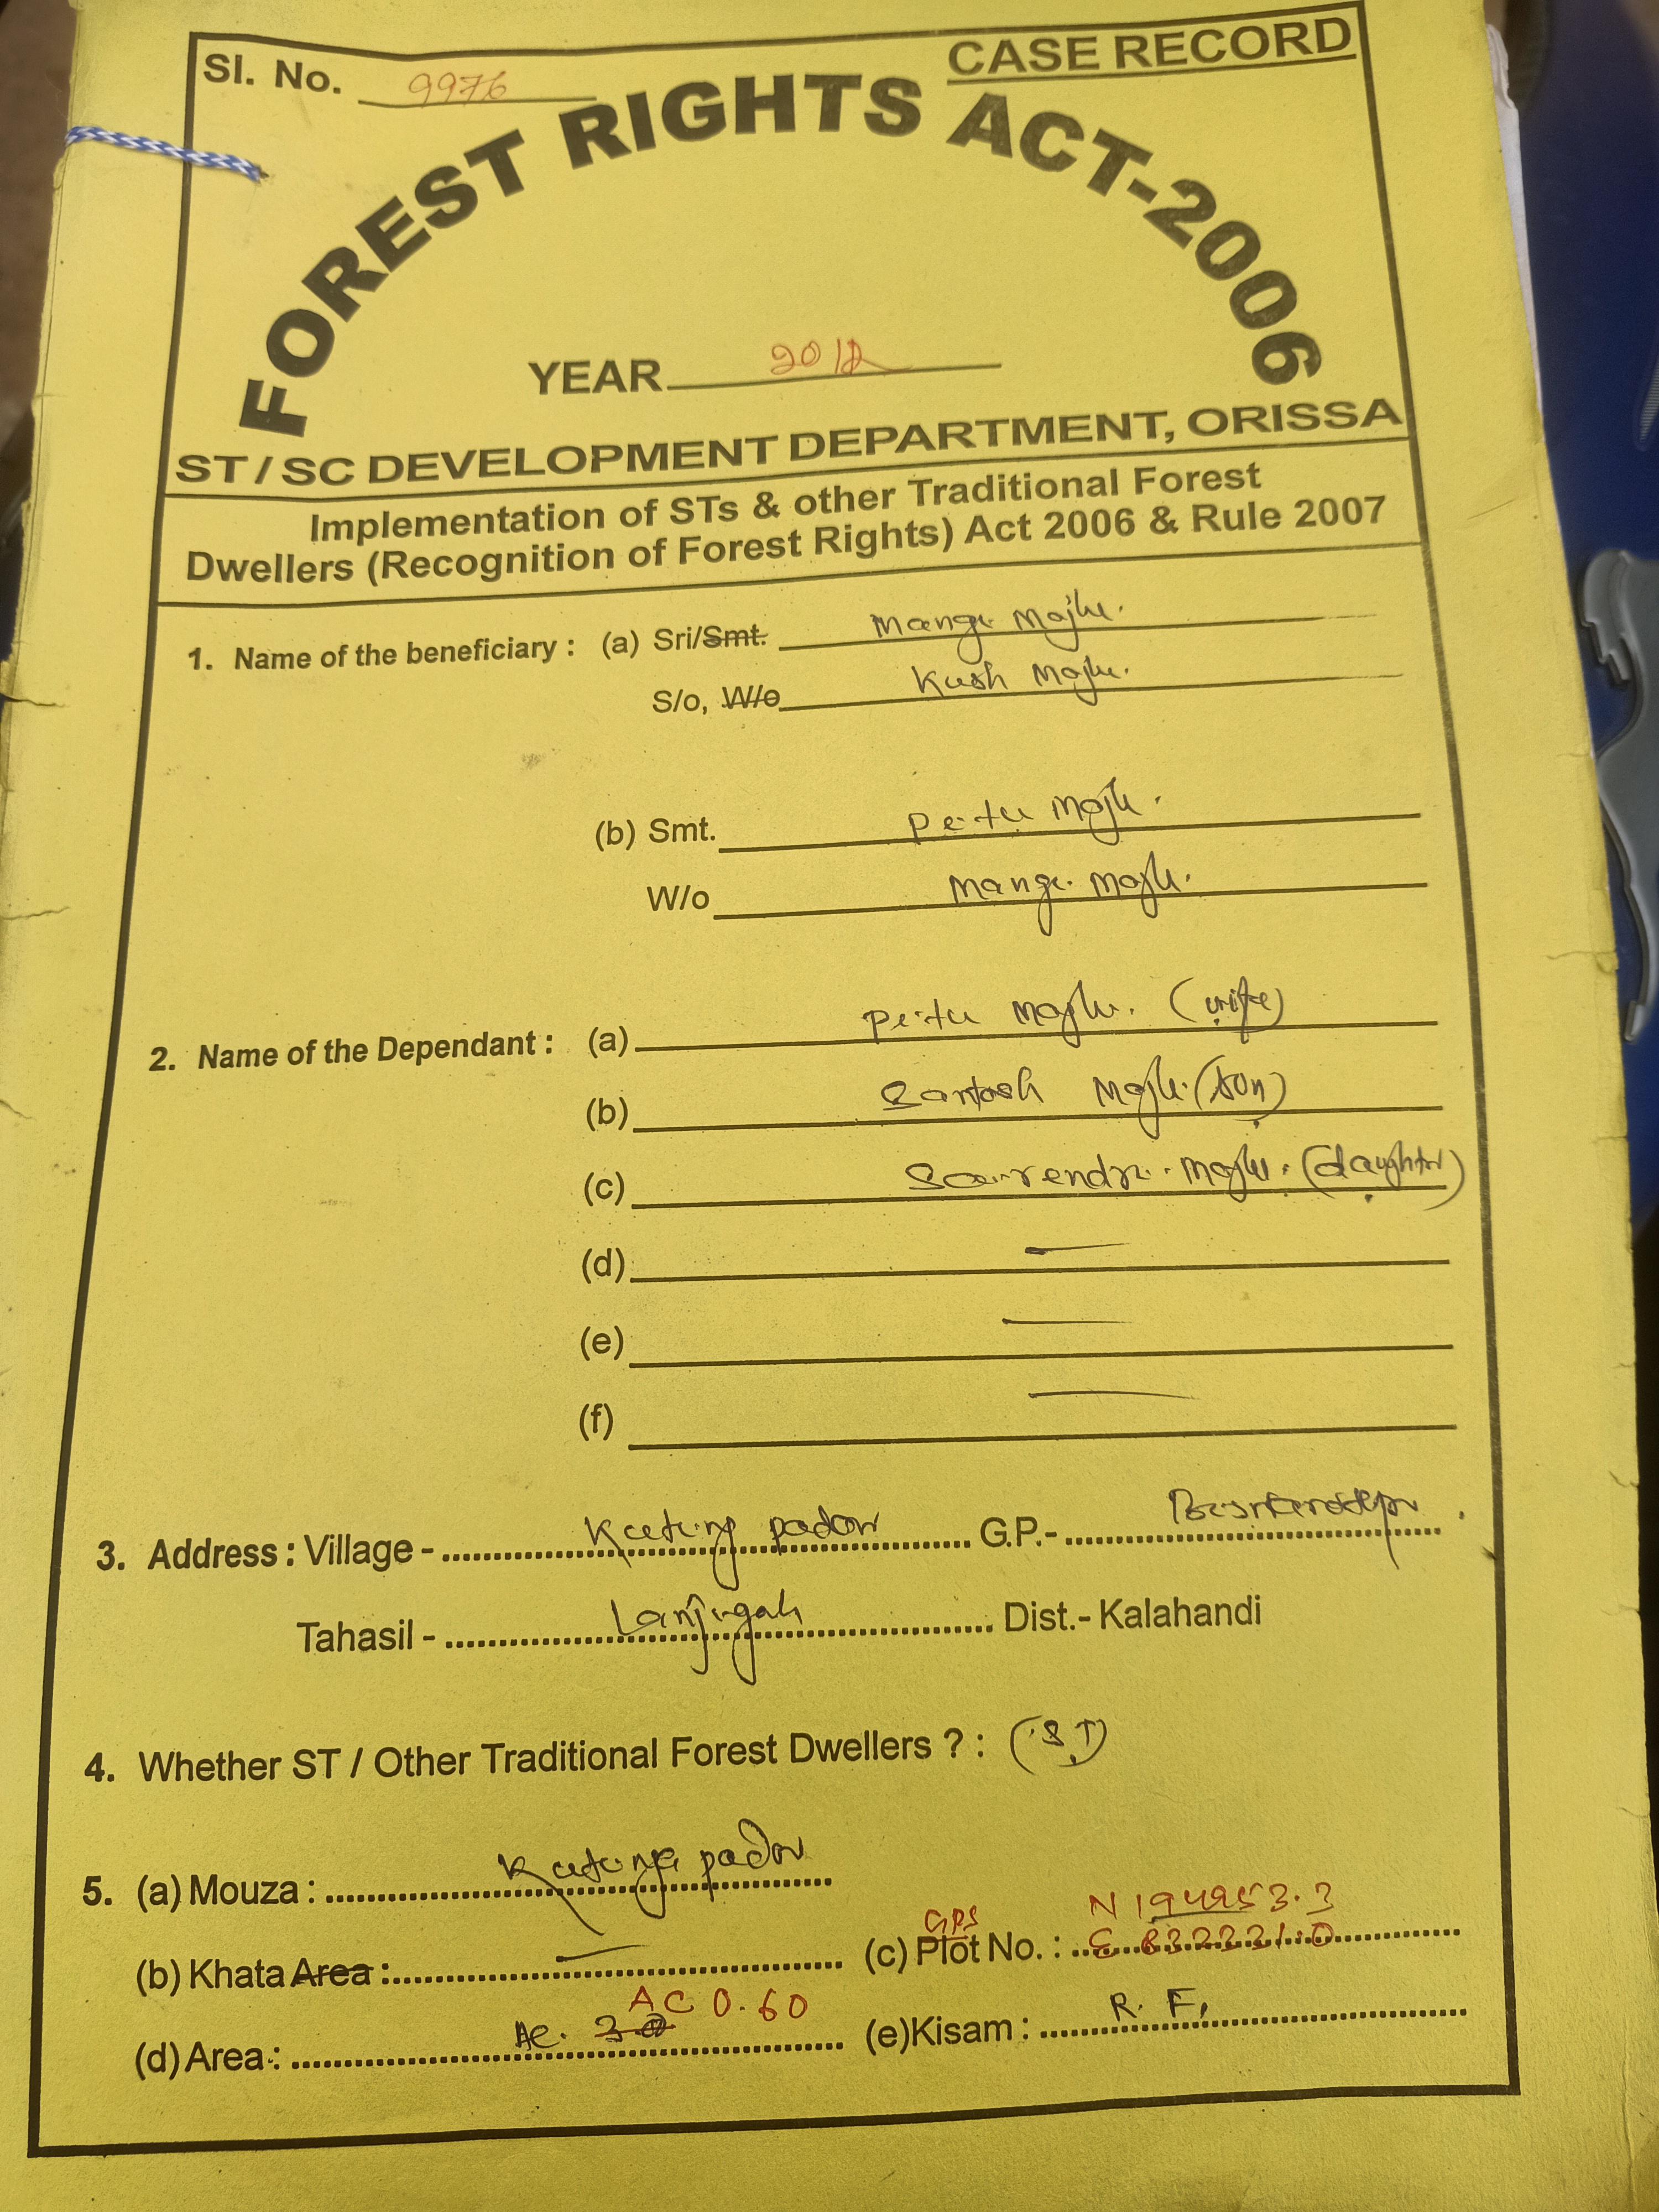 CASE RECORD
Sl. No. 9976
FOREST RIGHTS ACT-2006
YEAR 2012
ST / SC DEVELOPMENT DEPARTMENT, ORISSA
Implementation of STs & other Traditional Forest
Dwellers (Recognition of Forest Rights) Act 2006 & Rule 2007
1. Name of the beneficiary : (a) Sri/Smt. Mangu Majhi.
S/o, W/o Kush Majhi.
(b) Smt. Majhi.
W/o Mangu Majhi.
2. Name of the Dependant : (a) Majhi. (wife)
(b) Santosh Majhi (son)
(c) Majhi. (daughter)
(d) —
(e) —
(f) —
3. Address : Village - padar G.P.-
Tahasil - Lanjigah Dist.- Kalahandi
4. Whether ST / Other Traditional Forest Dwellers ? : (ST)
5. (a) Mouza : padar
(b) Khata Area : — (c) Plot No. : GPS N 194953.3
E 832221.0
(d) Area : Ac. 30 AC 0.60 (e) Kisam : R. F.